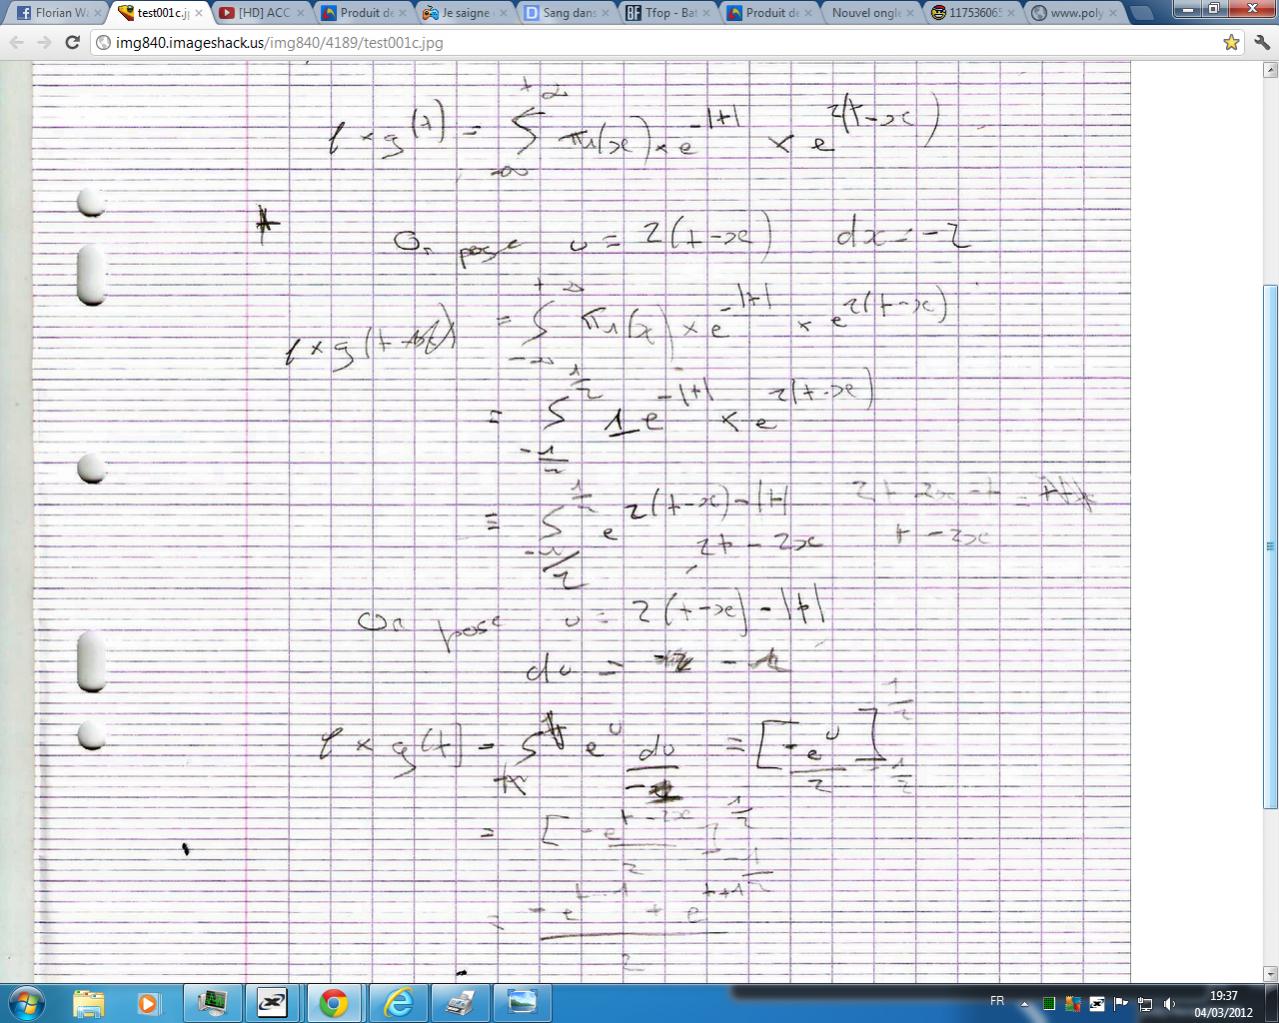 Florian Wa
test001c.j
[HD] ACC
Produit de
Je saigne
Sang dans
Tfop - Bat
Produit de
Nouvel ongle
117536065
www.poly
img840.imageshack.us/img840/4189/test001c.jpg
f × g(t) = ∫ +∞ -∞ π₁(x) × e^-|t| × e^2(t-x)
On pose u = 2(t-x) dx = -2
f × g(t = ∫ +∞ -∞ π₁(x) × e^-|t| × e^2(t-x)
= ∫ 1/2 -1/2 1 e^-|t| × e^2(t-x)
= ∫ 1/2 -1/2 e^2(t-x)-|t| 2t - 2x - t =
2t - 2x t - 2x
On pose u = 2(t-x) - |t|
du = -
f × g(t) = ∫ e^u du = [-e^u / 2] 1/2 -1/2
= [-e^t-2x / 2] 1/2 -1/2
= -e^t-1 + e^t+1 / 2
FR
19:37
04/03/2012